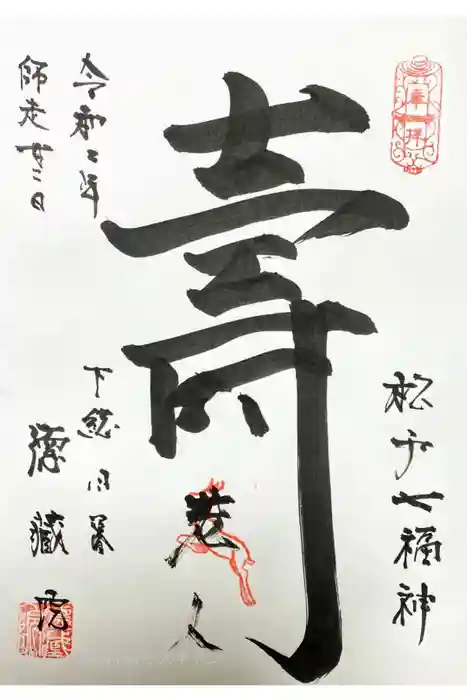 奉拝
松戸七福神
寿老人
下総国番
徳蔵院
令和二年
師走廿二日